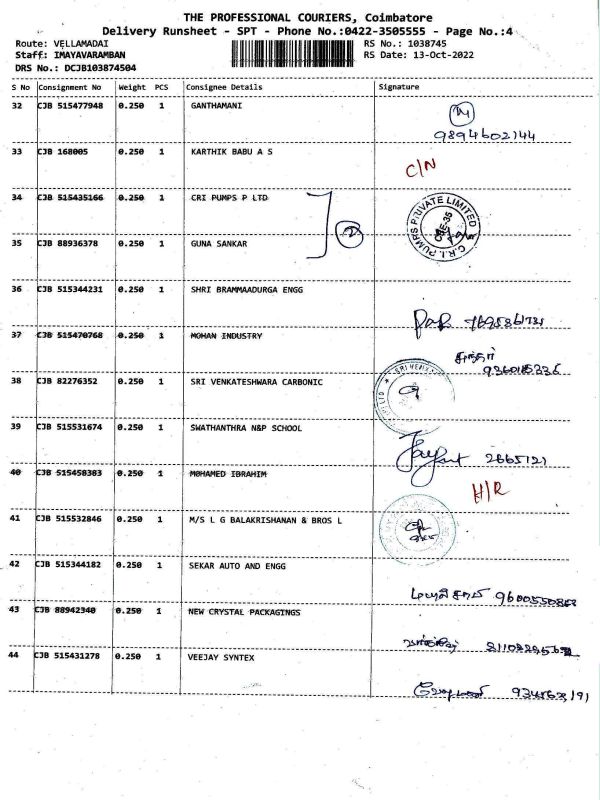 THE PROFESSIONAL COURIERS, Coimbatore
Delivery Runsheet - SPT - Phone No.:0422-3505555 - Page No.:4
Route: VELLAMADAI RS No.: 1038745
Staff: IMAYAVARAMBAN RS Date: 13-Oct-2022
DRS No.: DCJB103874504
S No Consignment No Weight PCS Consignee Details Signature
32 CJB 515477948 0.250 1 GANTHAMANI
9894602144
33 CJB 168005 0.250 1 KARTHIK BABU A S
C/N
34 CJB 515435166 0.250 1 CRI PUMPS P LTD
C.R.I. PUMPS PRIVATE LIMITED
35 CJB 88936378 0.250 1 GUNA SANKAR
36 CJB 515344231 0.250 1 SHRI BRAMMAADURGA ENGG
37 CJB 515470768 0.250 1 MOHAN INDUSTRY
38 CJB 82276352 0.250 1 SRI VENKATESHWARA CARBONIC
39 CJB 515531674 0.250 1 SWATHANTHRA N&P SCHOOL
2665121
40 CJB 515458383 0.250 1 MOHAMED IBRAHIM
H/R
41 CJB 515532846 0.250 1 M/S L G BALAKRISHANAN & BROS L
42 CJB 515344182 0.250 1 SEKAR AUTO AND ENGG
43 CJB 88942340 0.250 1 NEW CRYSTAL PACKAGINGS
44 CJB 515431278 0.250 1 VEEJAY SYNTEX